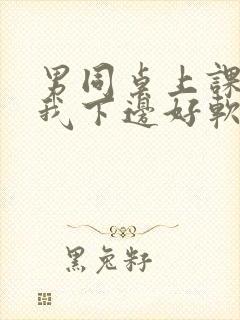 男同桌上課
我下邊好軟
黑兔籽